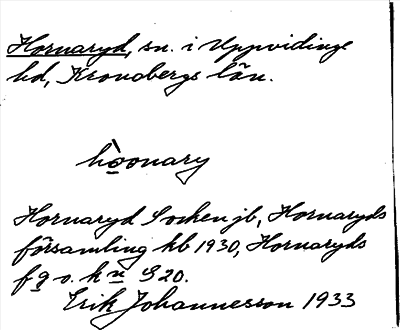 Hornaryd, sn. i Uppvidinge
hd, Kronobergs län.
hò̲onary
Hornaryd Socken jb, Hornaryds
församling kb 1930, Hornaryds
fg o. kn S 20.
Erik Johannesson 1933